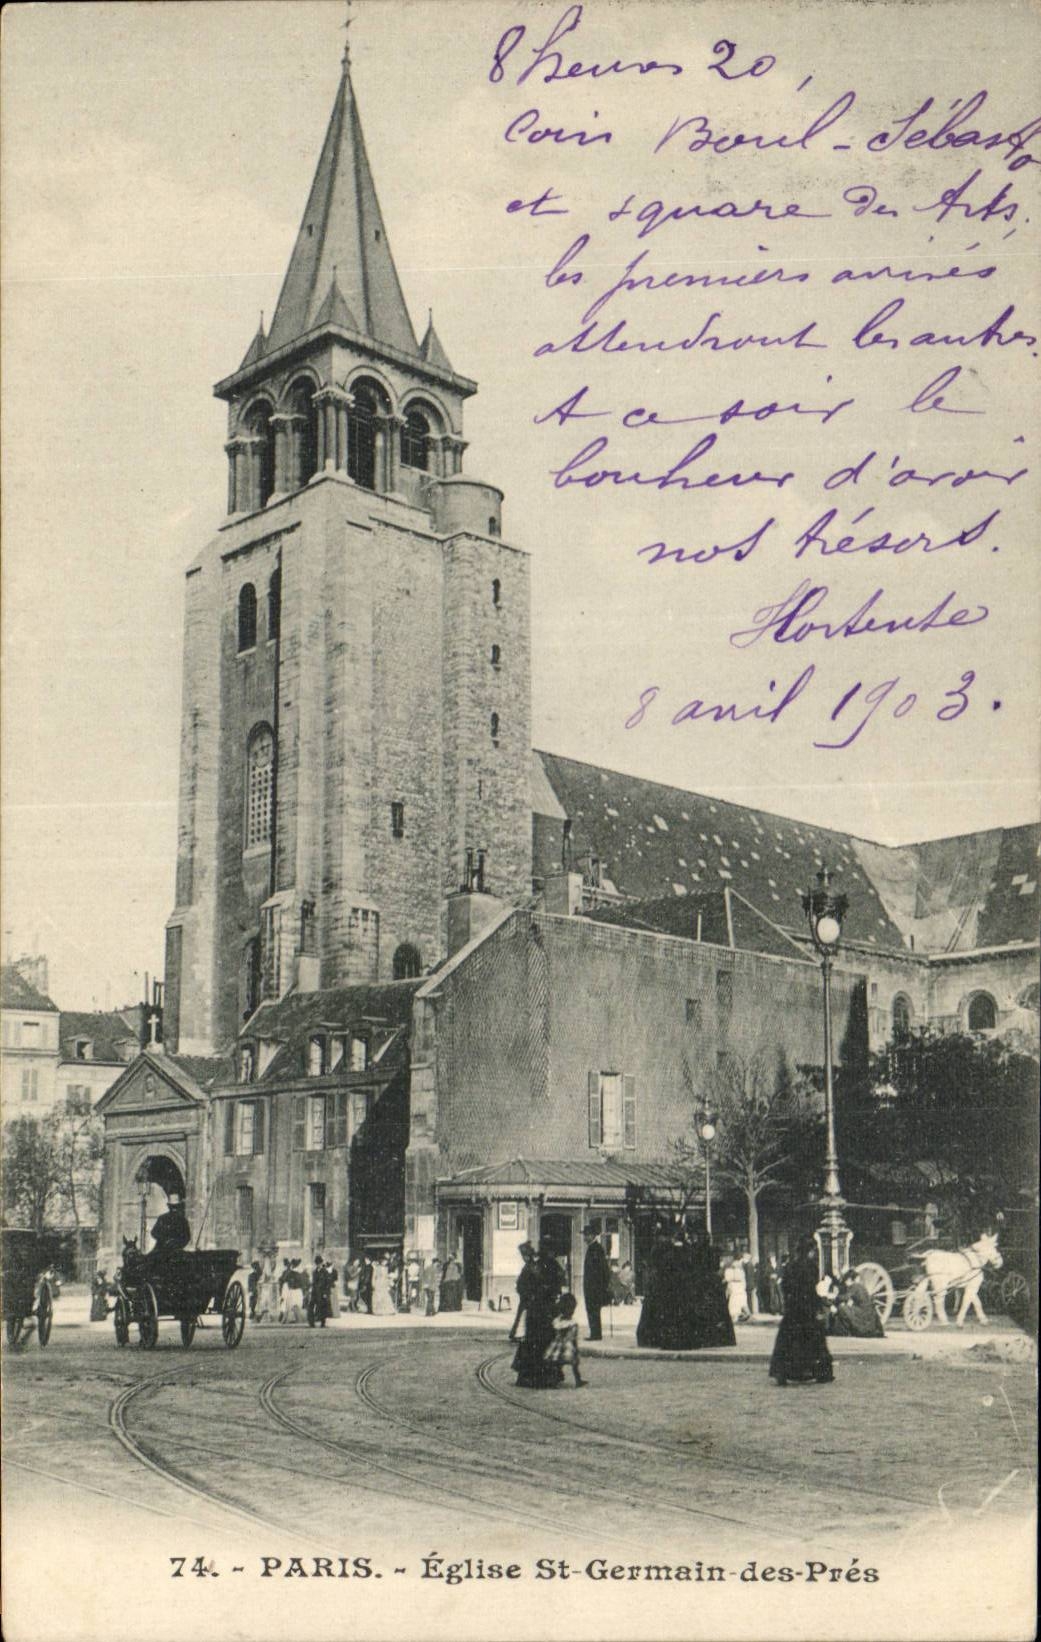 8 heures 20,
Coin Boul - Sébasto
et square des Arts,
les premiers arrivés
attendront les autres.
A ce soir le
bonheur d'avoir
nos trésors.
Hortense
8 avril 1903.
74. - PARIS. - Église St-Germain-des-Prés